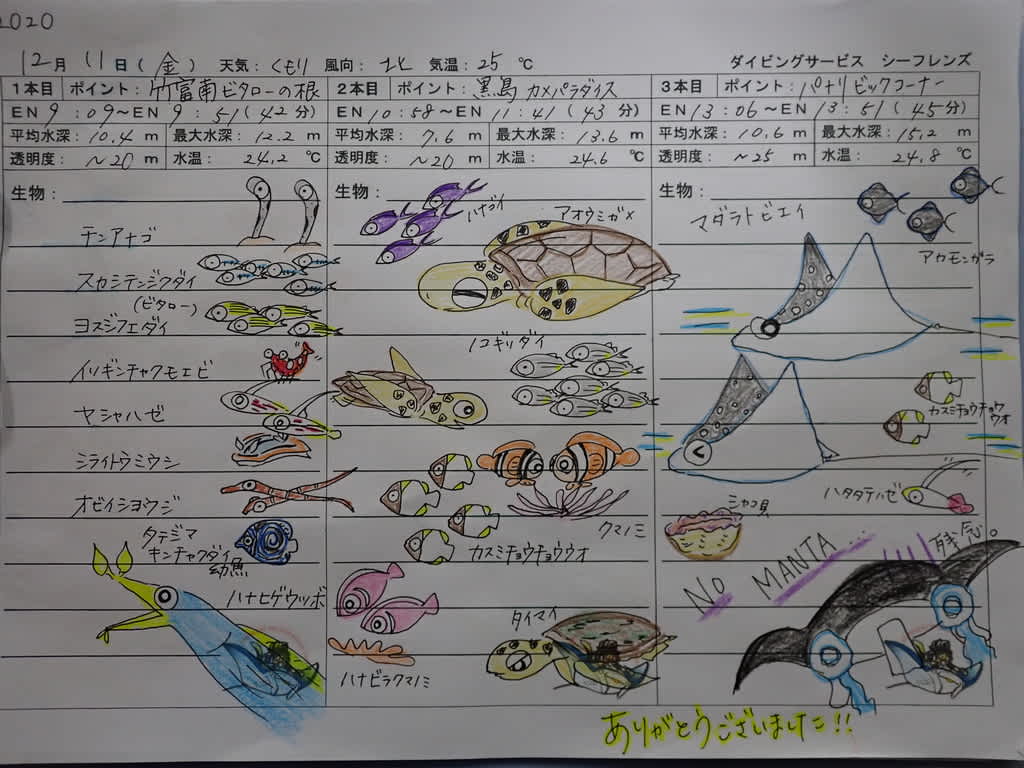 2020
12月 11日(金) 天気：くもり 風向：北 気温：25 ℃ ダイビングサービス シーフレンズ
1本目 ポイント：竹富南ビタローの根
EN 9：09～EN 9：51(42分)
平均水深：10.4 m 最大水深：12.2 m
透明度：～20 m 水温：24.2 ℃
生物：
チンアナゴ
スカシテンジクダイ
(ビタロー)
ヨスジフエダイ
イソギンチャクモエビ
ヤシャハゼ
ミライトウミウシ
オビイシヨウジ
タテジマ
キンチャクダイ
幼魚
ハナヒゲウツボ
2本目 ポイント：黒島 カメパラダイス
EN 10：58～EN 11：41(43分)
平均水深：7.6 m 最大水深：13.6 m
透明度：～20 m 水温：24.6 ℃
生物：
ハナゴイ
アオウミガメ
ノコギリダイ
クマノミ
カスミチョウチョウウオ
タイマイ
ハナビラクマノミ
3本目 ポイント：パナリ ビックコーナー
EN 13：06～EN 13：51(45分)
平均水深：10.6 m 最大水深：15.2 m
透明度：～25 m 水温：24.8 ℃
生物：
マダラトビエイ
アカモンガラ
カスミチョウチョウ
ウオ
ハタタテハゼ
シャコ貝
NO MANTA... 残念。
ありがとうございました!!